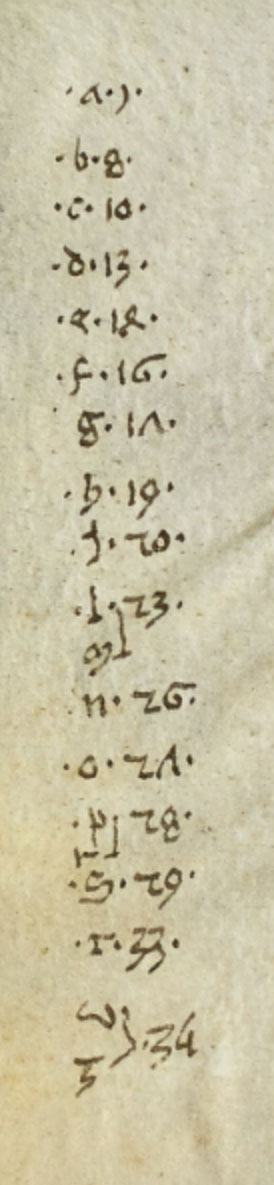 ·a·1·
·b·8·
·c·10·
·d·13·
·e·14·
·f·16·
g·17·
·h·19·
·j·20·
·l·23·
m
n·26·
·o·27·
·p 28·
r
·s·29·
·t·33·
w
}·34
z